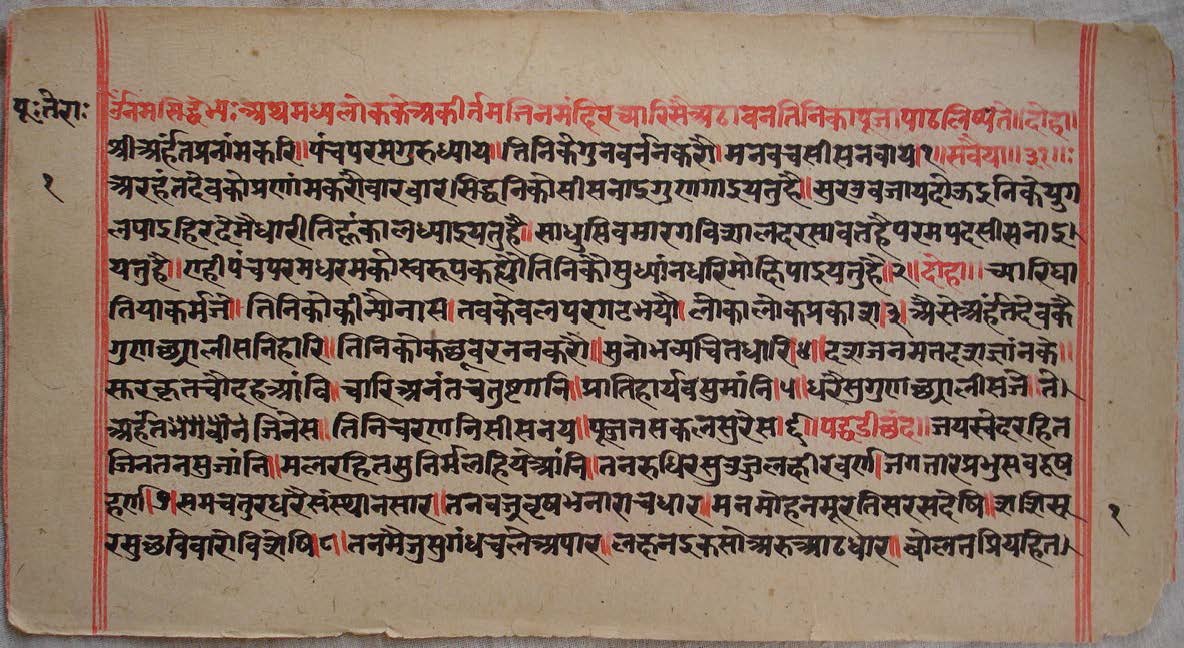 पूःतेराः
ॐनमसिद्धेभ्यःअथमध्यलोककेअकीर्तमजिनमंदिरच्यारिसैअठावनतिनिकापूजापाठलिष्यते॥दोहा॥
श्रीअर्हंतप्रनांमकरि॥पंचपरमगुरुध्याय॥तिनिकेगुनवर्ननकरौं॥मनवचसीसनवाय१॥सवैया॥३१॥ः
१
अरहंतदेवकोप्रणांमकरौंवारवार।सिद्धनिकोसीसनाऽगुणगाऽयतुहै॥सुरउवजायदोऊऽतिकेयुग
लपाऽहिरदैमैधारीतिहूंकालध्याऽयतुहै॥साधुसिवमारगविशालदरसावतहैपरमपदसीसनाऽ।
यतुहै॥एहीपंचपरमधरमकोस्वरूपकह्यौतिनिकौसुध्यांनधरिमोह्निपाऽयतुहै॥२॥दोहा॥च्यारिघा
तियाकर्मजे॥तिनिकोकीन्मोनास।तवकेवलपरगटभयौ।लोकालोकप्रकाश३॥अैसेअर्हंतदेवकै
गुणछ्यालीसनिहारि॥तिनिकोकछूवरननकरौं॥सुनोभव्यचितधारि॥४॥दशजनमतदशज्ञांनके॥
सुरकृतचौदहआंवि॥चारिअनंतचतुष्टगनि॥प्रातिहार्यवसुमांनि॥५॥धरैसुगुणछ्यालीसजे॥ते।
अर्हंतभगवांनजिनेस॥तिनिचरणनिसीसनय॥पूजतसकलसुरेस॥६॥पद्धडीछंद॥जयस्वेदरहित
जिनतनसुजांनि॥मलरहितसुनिर्मलहियेआंनि॥तनरुधिरसुउजुलह्नीरवर्ण॥जगतारप्रभुसवदुष
हर्ण॥७॥समचतुरधरैसंस्थानसार॥तनवज्रवृषभनाराचधार॥मनमोहनमूरतिसरसदेषि॥शशिसू
१
रसुछविवारौविशेषि॥८॥तनमैजुसुगंधचलेअपार॥लह्ननऽकसोअरुआठधार॥वोलनप्रियहित।